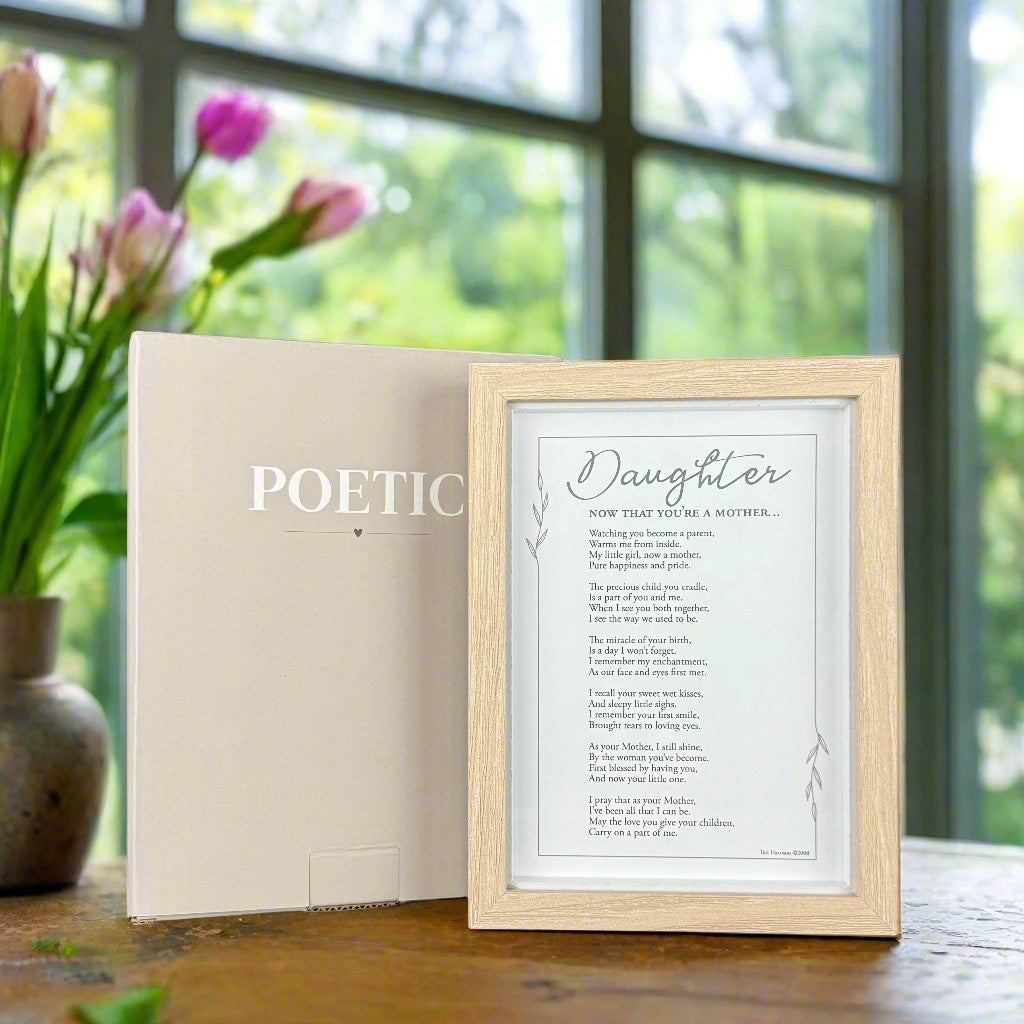 POETIC
Daughter
NOW THAT YOU'RE A MOTHER...
Watching you become a parent,
Warms me from inside.
My little girl, now a mother,
Pure happiness and pride.
The precious child you cradle,
Is a part of you and me.
When I see you both together,
I see the way we used to be.
The miracle of your birth,
Is a day I won't forget.
I remember my enchantment,
As our face and eyes first met.
I recall your sweet wet kisses,
And sleepy little sighs.
I remember your first smile,
Brought tears to loving eyes.
As your Mother, I still shine,
By the woman you've become.
First blessed by having you,
And now your little one.
I pray that as your Mother,
I've been all that I can be.
May the love you give your children,
Carry on a part of me.
Harrison ©2000